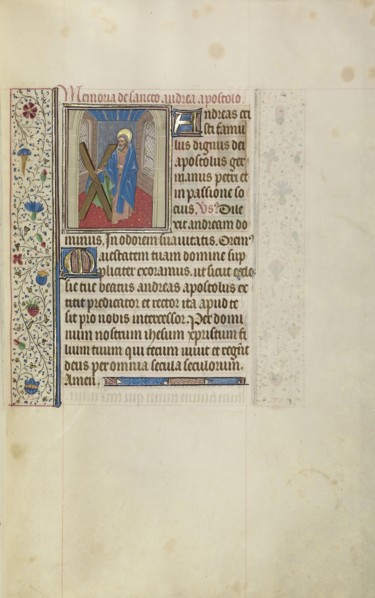 Memoria de sancto andrea apostolo
Andreas cri
sti famu
lus dignus dei
apostolus ger
manus petri et
in passione so
cius. Vs Dile
xit andream do
minus. In odorem suauitatis. Orem9
Maiestatem tuam domine sup
pliciter exoramus. ut sicut eccle
sie tue beatus andreas apostolus ex
titit predicator et rector ita apud te
sit pro nobis intercessor. Per domi
num nostrum ihesum xpristum fi
lium tuum qui tecum uiuit et regnt
deus per omnia secula seculorum.
Amen.